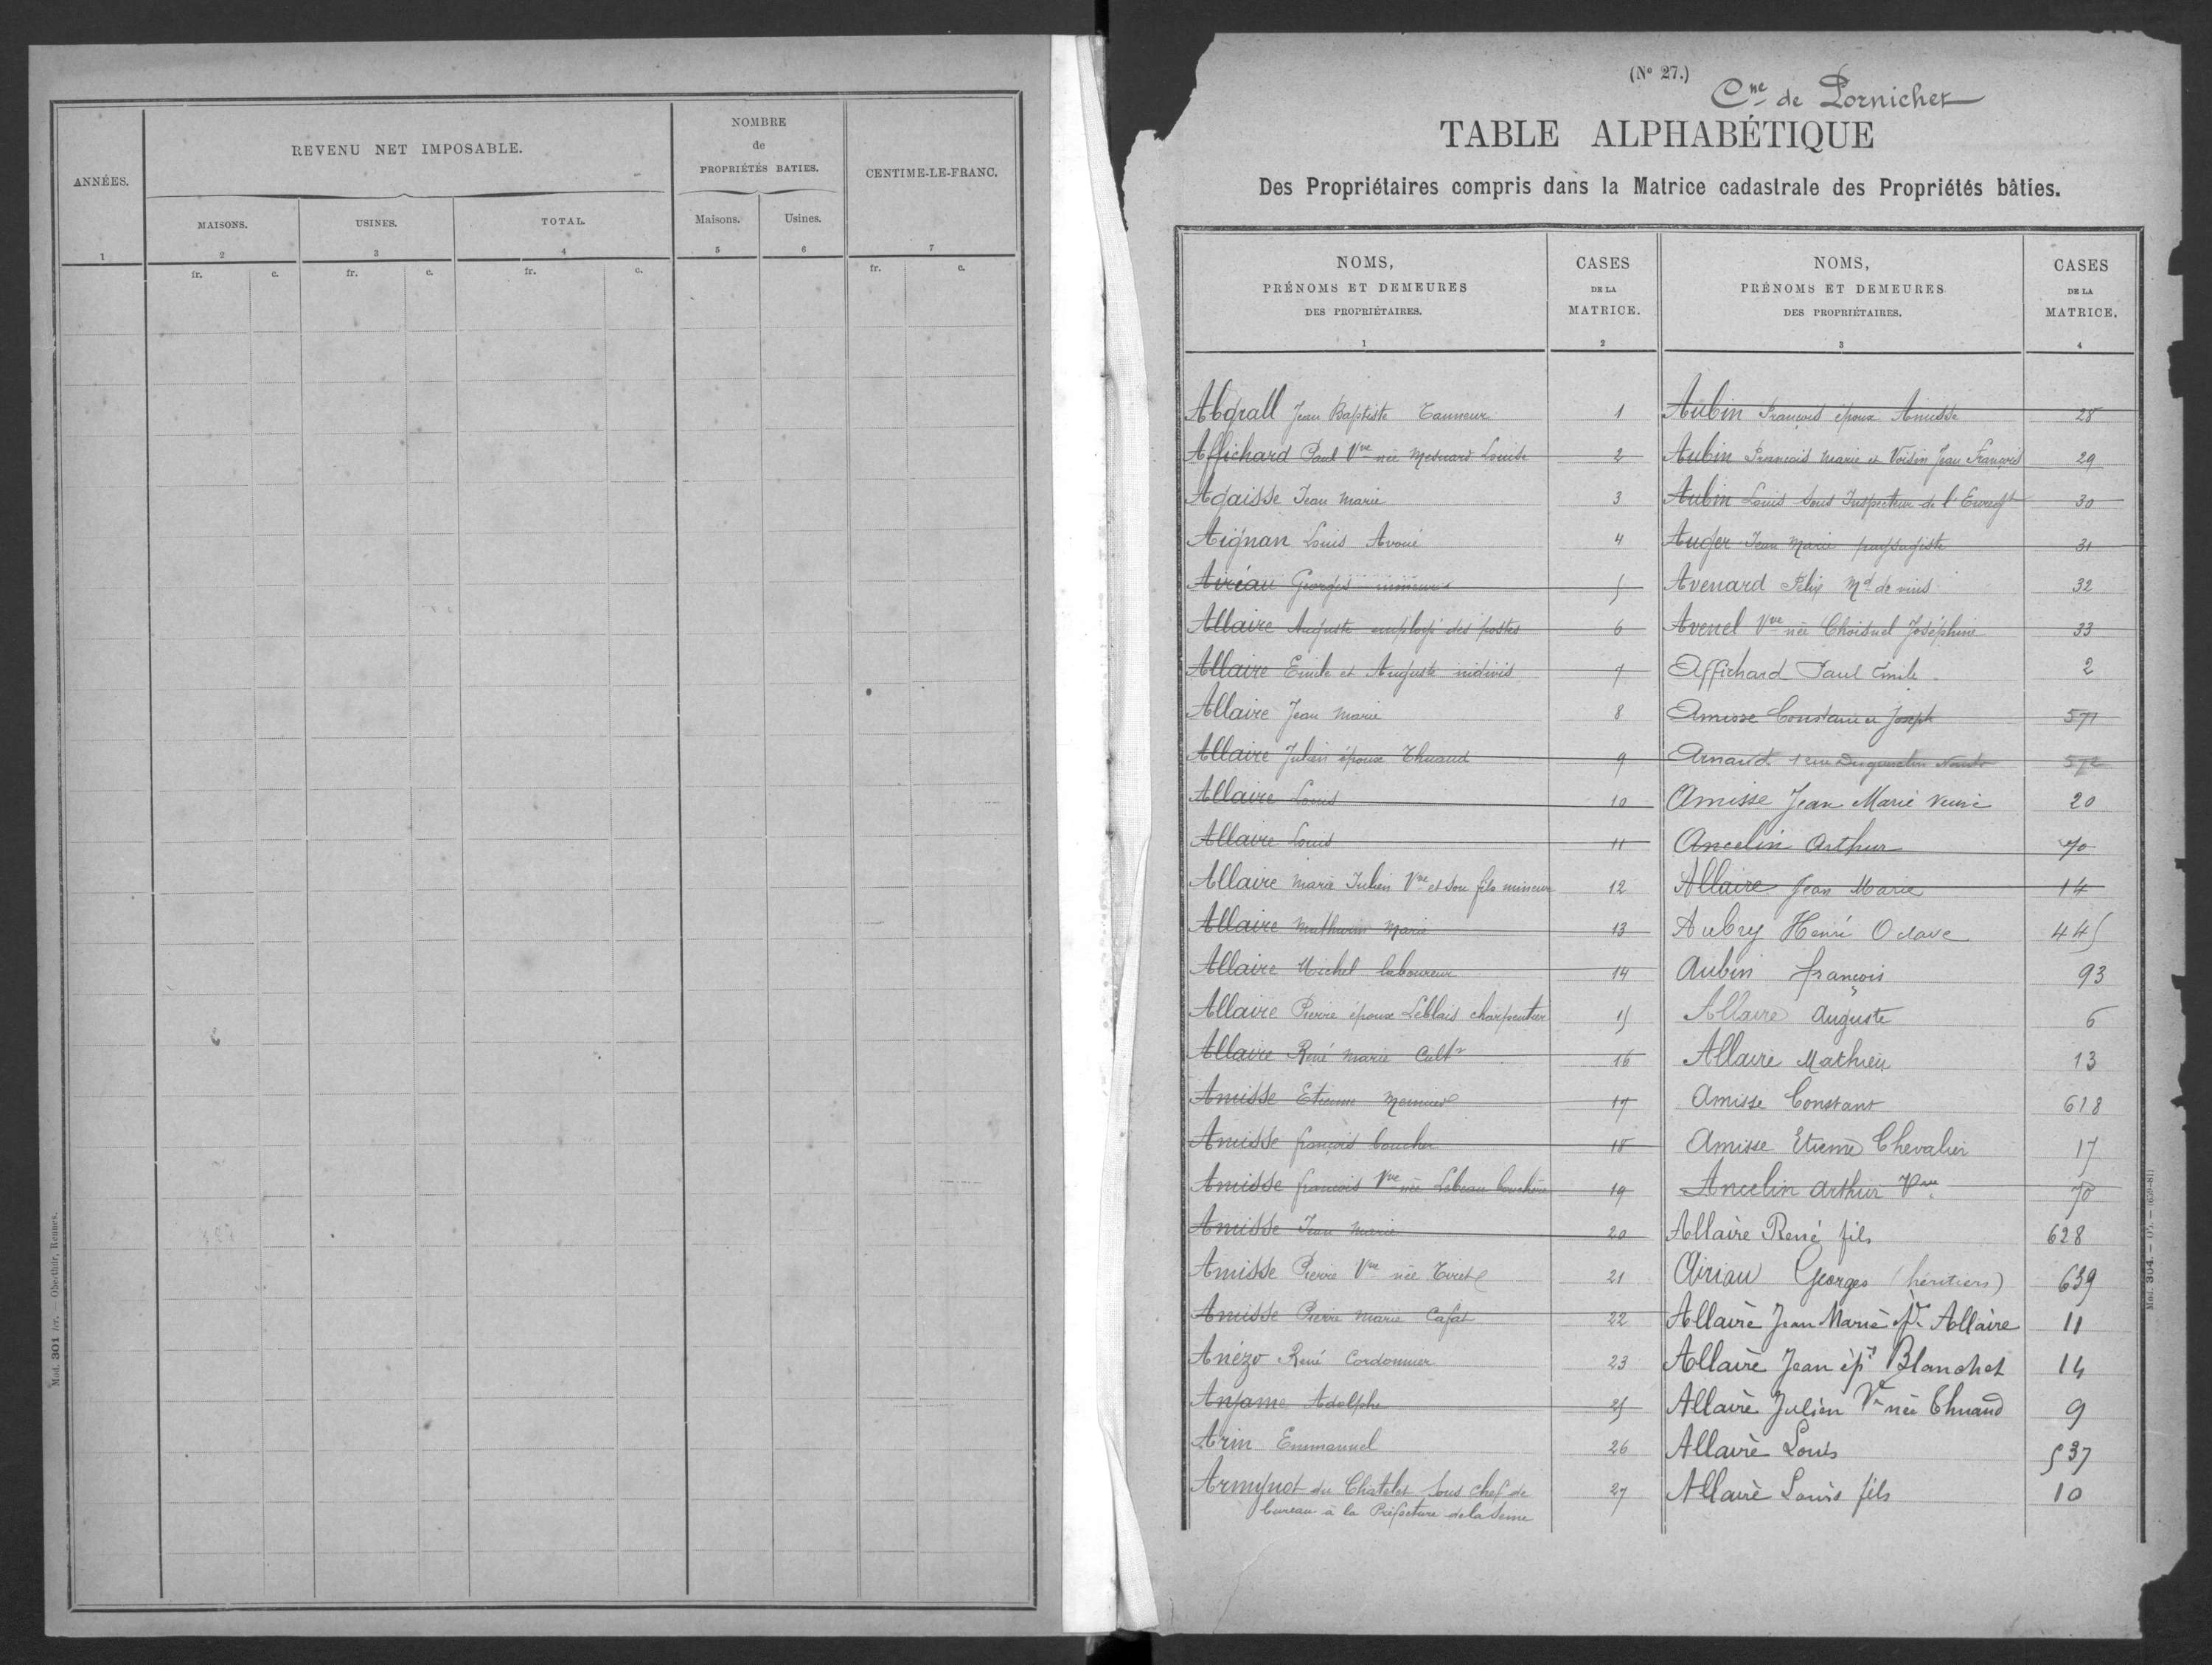 ANNÉES.
REVENU NET IMPOSABLE.
NOMBRE
de
PROPRIÉTÉS BATIES.
CENTIME-LE-FRANC.
MAISONS.
USINES.
TOTAL.
Maisons.
Usines.
1 2 3 4 5 6 7
fr. c. fr. c. fr. c. fr. c.
Mod. 301 ter. — Oberthür, Rennes.
(No 27.)
Cne de Pornichet
TABLE ALPHABÉTIQUE
Des Propriétaires compris dans la Matrice cadastrale des Propriétés bâties.
NOMS,
PRÉNOMS ET DEMEURES
DES PROPRIÉTAIRES.
1
CASES
DE LA
MATRICE.
2
Abgrall Jean Baptiste Tanneur 1
Affichard Paul Vve née Mesnard Louise 2
Agaisse Jean Marie 3
Aignan Louis Avoué 4
Airéau Georges mineurs 5
Allaire Auguste employé des postes 6
Allaire Emile et Auguste indivis 7
Allaire Jean Marie 8
Allaire Julien époux Thuaud 9
Allaire Louis 10
Allaire Louis 11
Allaire Marie Julien Vve et son fils mineur 12
Allaire Mathurin Marie 13
Allaire Michel laboureur 14
Allaire Pierre époux Leblais charpentier 15
Allaire René Marie Cultr 16
Amisse Etienne 17
Amisse françois boucher 18
Amisse françois Vve née Lebeau bouchère 19
Amisse Jean Marie 20
Amisse Pierre Vve née 21
Amisse Pierre Marie 22
Anézo René Cordonnier 23
Anjame Adolphe 25
Arin Emmanuel 26
Armynot du Chatelet Sous chef de 27
bureau à la Préfecture de la Seine
NOMS,
PRÉNOMS ET DEMEURES
DES PROPRIÉTAIRES.
3
CASES
DE LA
MATRICE.
4
Aubin François époux Amisse 28
Aubin François Marie et Voisin Jean François 29
Aubin Louis Sous Inspecteur de l'Enregt 30
Auger Jean Marie paysagiste 31
Avenard Félix Md de vins 32
Avenel Vve née Choisnel Joséphine 33
Affichard Paul Emile 2
Amisse Constance Joseph 571
Arnaud 1 rue Duguesclin Nantes 572
Amisse Jean Marie veuve 20
Ancelin Arthur 70
Allaire Jean Marie 14
Aubry Henri Octave 445
Aubin françois 93
Allaire Auguste 6
Allaire Mathieu 13
Amisse Constant 618
Amisse Etienne Chevalier 17
Ancelin Arthur Vve 70
Allaire René fils 628
Airiau Georges (héritiers) 639
Allaire Jean Marie Allaire 11
Allaire Jean ép. Blanchet 14
Allaire Julien Ve née Thuaud 9
Allaire Louis 537
Allaire Louis fils 10
Mod. 304.